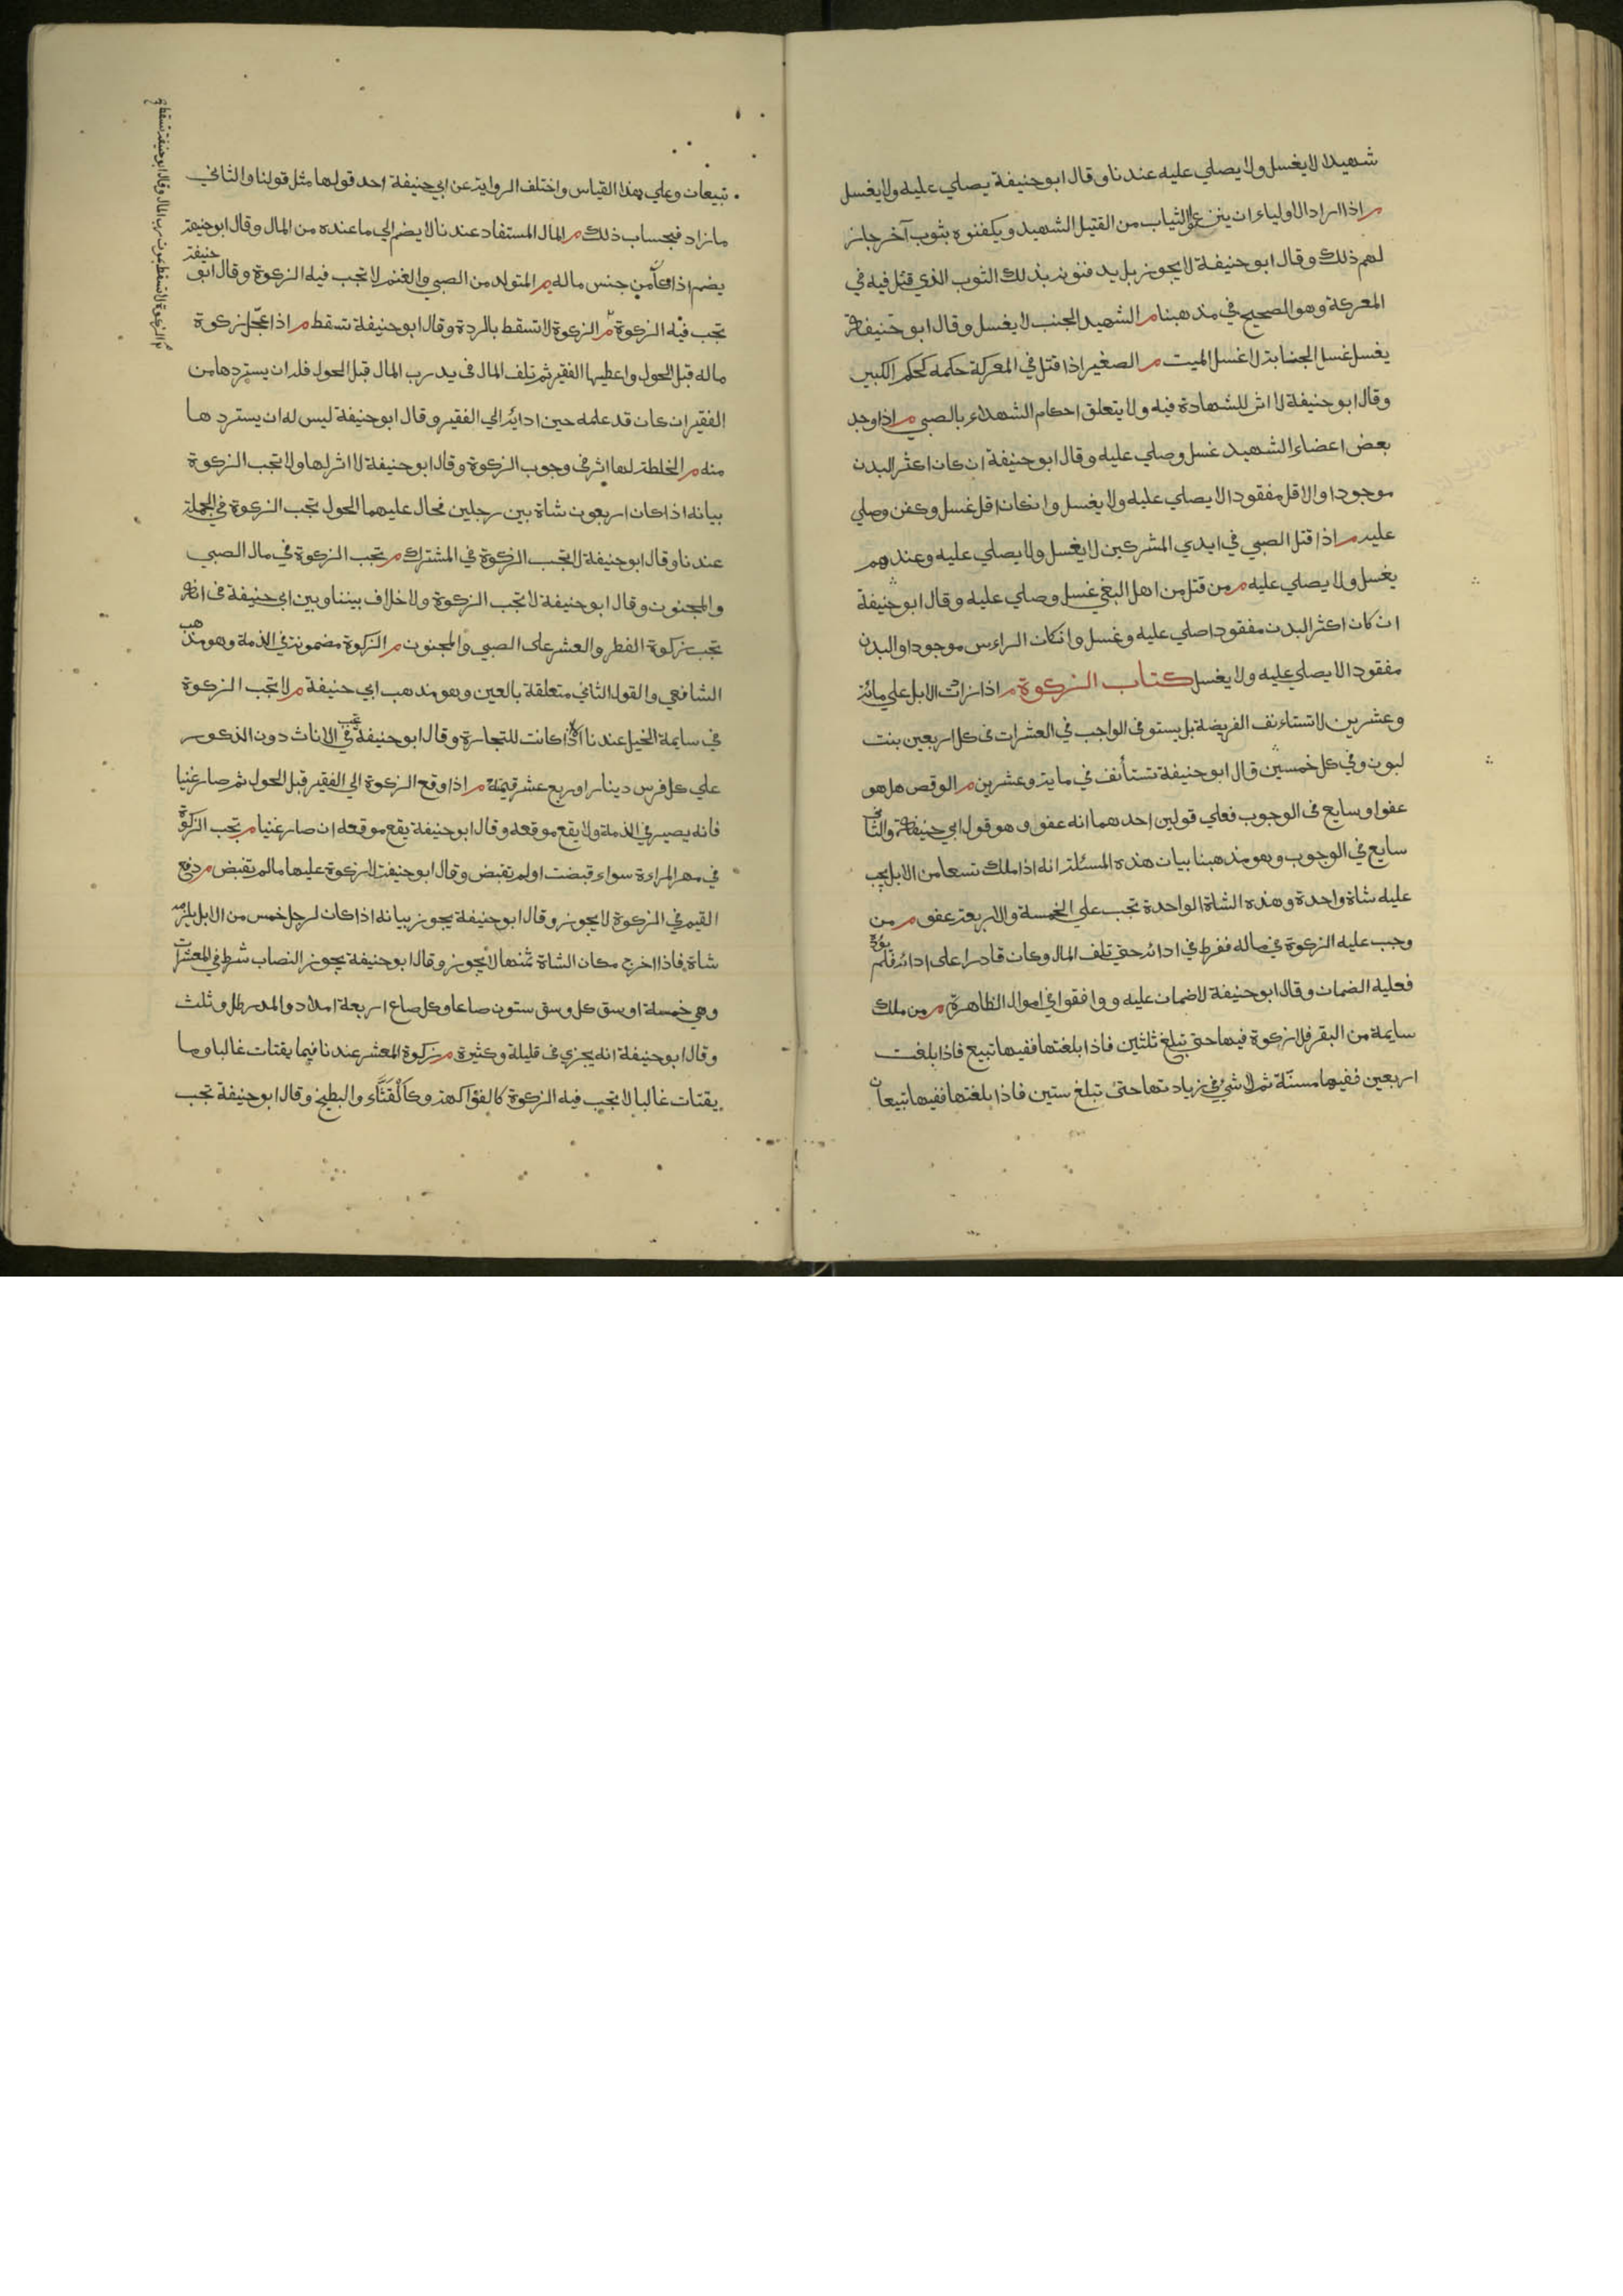 شهيدا لا يغسل ولا يصلي عليه عندنا وقال ابو حنيفة يصلي عليه ولا يغسل
م اذا اراد الاولياء ان ينزعوا الثياب من القتيل الشهيد ويكفنوه بثوب آخر جاز
لهم ذلك وقال ابو حنيفة لا يجوز بل يدفنونه بذلك الثوب الذي قتل فيه في
المعركة وهو الصحيح في مذهبنا م الشهيد الجنب لا يغسل وقال ابو حنيفة
يغسل غسل الجنابة لا غسل الميت م الصغير اذا قتل في المعركة حكمه كحكم الكبير
وقال ابو حنيفة لا اثر للشهادة فيه ولا يتعلق احكام الشهداء بالصبي م اذا وجد
بعض اعضاء الشهيد غسل وصلي عليه وقال ابو حنيفة ان كان اكثر البدن
موجودا والاقل مفقودا لا يصلي عليه ولا يغسل وان كان اقل غسل وكفن وصلي
عليه م اذا قتل الصبي في ايدي المشركين لا يغسل ولا يصلي عليه وعندهم
يغسل ولا يصلي عليه م من قتل من اهل البغي غسل وصلي عليه وقال ابو حنيفة
ان كان اكثر البدن مفقودا صلي عليه وغسل وان كان الراءس موجودا والبدن
مفقودا لا يصلي عليه ولا يغسل كتاب الزكوة م اذا زات الابل علي مائة
وعشرين لا تستاءنف الفريضة بل يستوفى الواجب في العشرات في كل اربعين بنت
لبون وفي كل خمسين قال ابو حنيفة تستأنف في ماية وعشرين م الوقص هل هو
عفوا وسايع في الوجوب فعلي قولين احدهما انه عفو وهو قول ابي حنيفة والثاني
سايع في الوجوب وهو مذهبنا بيان هذه المسئلة انه اذا ملك تسعا من الابل يجب
عليه شاة واحدة وهذه الشاة الواحدة تجب علي الخمسة والاربعة عفو م من
وجب عليه الزكوة في ماله ففرط في ادائه حتي تلف المال وكان قادرا على ادائه فلم يؤد
فعليه الضمان وقال ابو حنيفة لا ضمان عليه ووافقوا في اموال الظاهرة م من ملك
سايمة من البقر فلا زكوة فيها حتي تبلغ ثلثين فاذا بلغتها ففيها تبيع فاذا بلغت
اربعين ففيها مسنّة ثم لا شيء في زيادتها حتى تبلغ ستين فاذا بلغتها ففيها تبيعان
تبيعان وعلي هذا القياس واختلف الرواية عن ابي حنيفة احد قولها مثل قولنا والثاني
ما زاد فبحساب ذلك م المال المستفاد عندنا لا يضم الي ما عنده من المال وقال ابو حنيفة
يضم اذا كان من جنس ماله م المتولد من الصبي والغنم لا تجب فيه الزكوة وقال ابو حنيفة
تجب فيه الزكوة م الزكوة لا تسقط بالردة وقال ابو حنيفة تسقط م اذا عجّل زكوة
ماله قبل الحول واعطيها الفقير ثم تلف المال في يد رب المال قبل الحول فله ان يستردها من
الفقير ان كان قد علمه حين ادائه الي الفقير وقال ابو حنيفة ليس له ان يستردها
منه م الخلطة لها اثر في وجوب الزكوة وقال ابو حنيفة لا اثر لها ولا تجب الزكوة
بيانه اذا كان اربعون شاة بين رجلين فحال عليهما الحول تجب الزكوة في الجملة
عندنا وقال ابو حنيفة لا تجب الزكوة في المشترك م تجب الزكوة في مال الصبي
والمجنون وقال ابو حنيفة لا تجب الزكوة ولا خلاف بيننا وبين ابي حنيفة في انه
تجب زكوة الفطر والعشر على الصبي والمجنون م الزكوة مضمونة في الذمة وهو مذهب
الشافعي والقول الثاني متعلقة بالعين وهو مذهب ابي حنيفة م لا تجب الزكوة
في سايمة الخيل عندنا الا اذا كانت للتجارة وقال ابو حنيفة تجب في الاناث دون الذكور
علي كل فرس دينار او ربع عشر قيمته م اذا وقع الزكوة الي الفقير قبل الحول ثم صار غنيا
فانه يصير في الذمة ولا يقع موقعه وقال ابو حنيفة يقع موقعه ان صار غنيا م تجب الزكوة
في مهر المراءة سواء قبضت او لم تقبض وقال ابو حنيفة لا زكوة عليها ما لم تقبض م دفع
القيم في الزكوة لا يجوز وقال ابو حنيفة يجوز بيانه اذا كان لرجل خمس من الابل يلزمه
شاة فاذا اخرج مكان الشاة ثمنها لا يجوز وقال ابو حنيفة يجوز النصاب شرط في المعشرات
وهي خمسة اوسق كل وسق ستون صاعا وكل صاع اربعة امداد والمد رطل وثلث
وقال ابو حنيفة انه يجزي في قليلة وكثيرة م زكوة المعشر عندنا فيما يقتات غالبا وما
يقتات غالبا لا تجب فيه الزكوة كالفواكهة وكالقثّاء والبطيخ وقال ابو حنيفة تجب
م الزكوة لا تسقط بموت رب المال وقال ابو حنيفة تسقط